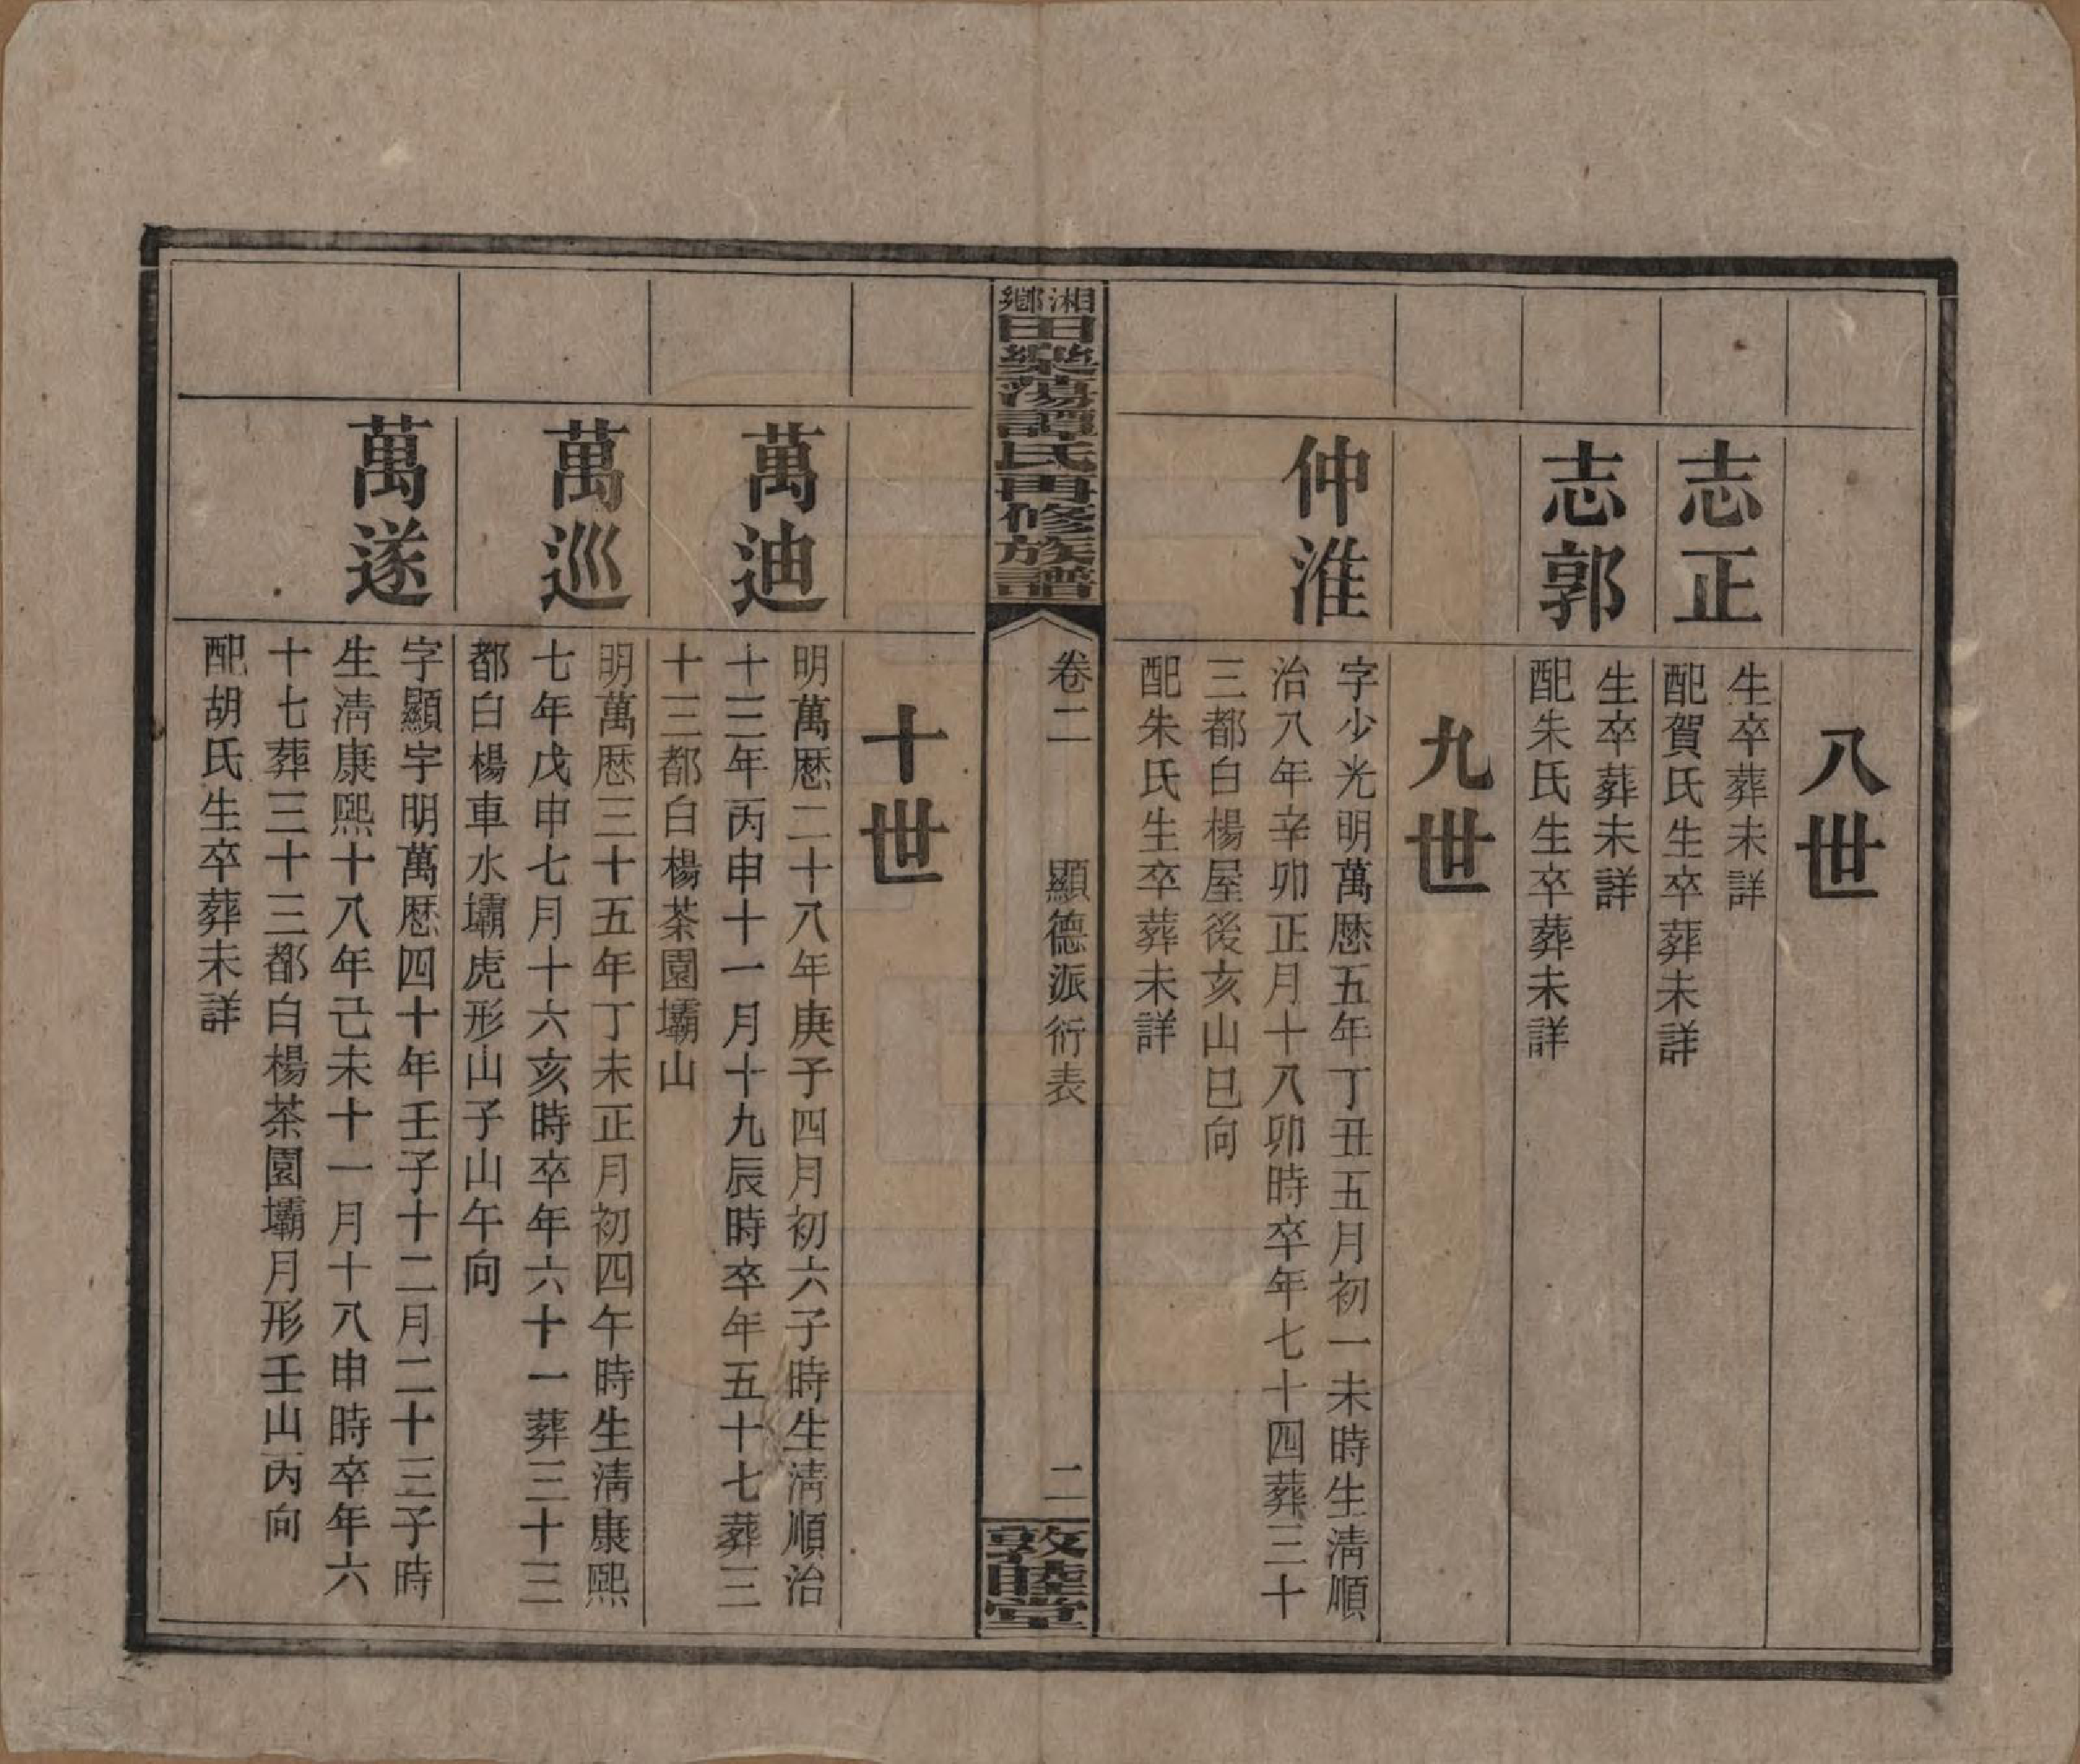 八世
志正
生卒葬未詳
配賀氏生卒葬未詳
志郭
生卒葬未詳
配朱氏生卒葬未詳
九世
仲淮
字少光明萬厯五年丁丑五月初一未時生淸順
治八年辛卯正月十八卯時卒年七十四葬三十
三都白楊屋後亥山巳向
配朱氏生卒葬未詳
湘鄉田樂蕩譚氏再修族譜
卷二
顯德派衍表
二
敦睦堂
十世
萬迪
明萬厯二十八年庚子四月初六子時生淸順治
十三年丙申十一月十九辰時卒年五十七葬三
十三都白楊茶園壩山
萬巡
明萬厯三十五年丁未正月初四午時生淸康熙
七年戊申七月十六亥時卒年六十一葬三十三
都白楊車水壩虎形山子山午向
萬遂
字顯宇明萬厯四十年壬子十二月二十三子時
生淸康熙十八年己未十一月十八申時卒年六
十七葬三十三都白楊茶園壩月形壬山丙向
配胡氏生卒葬未詳